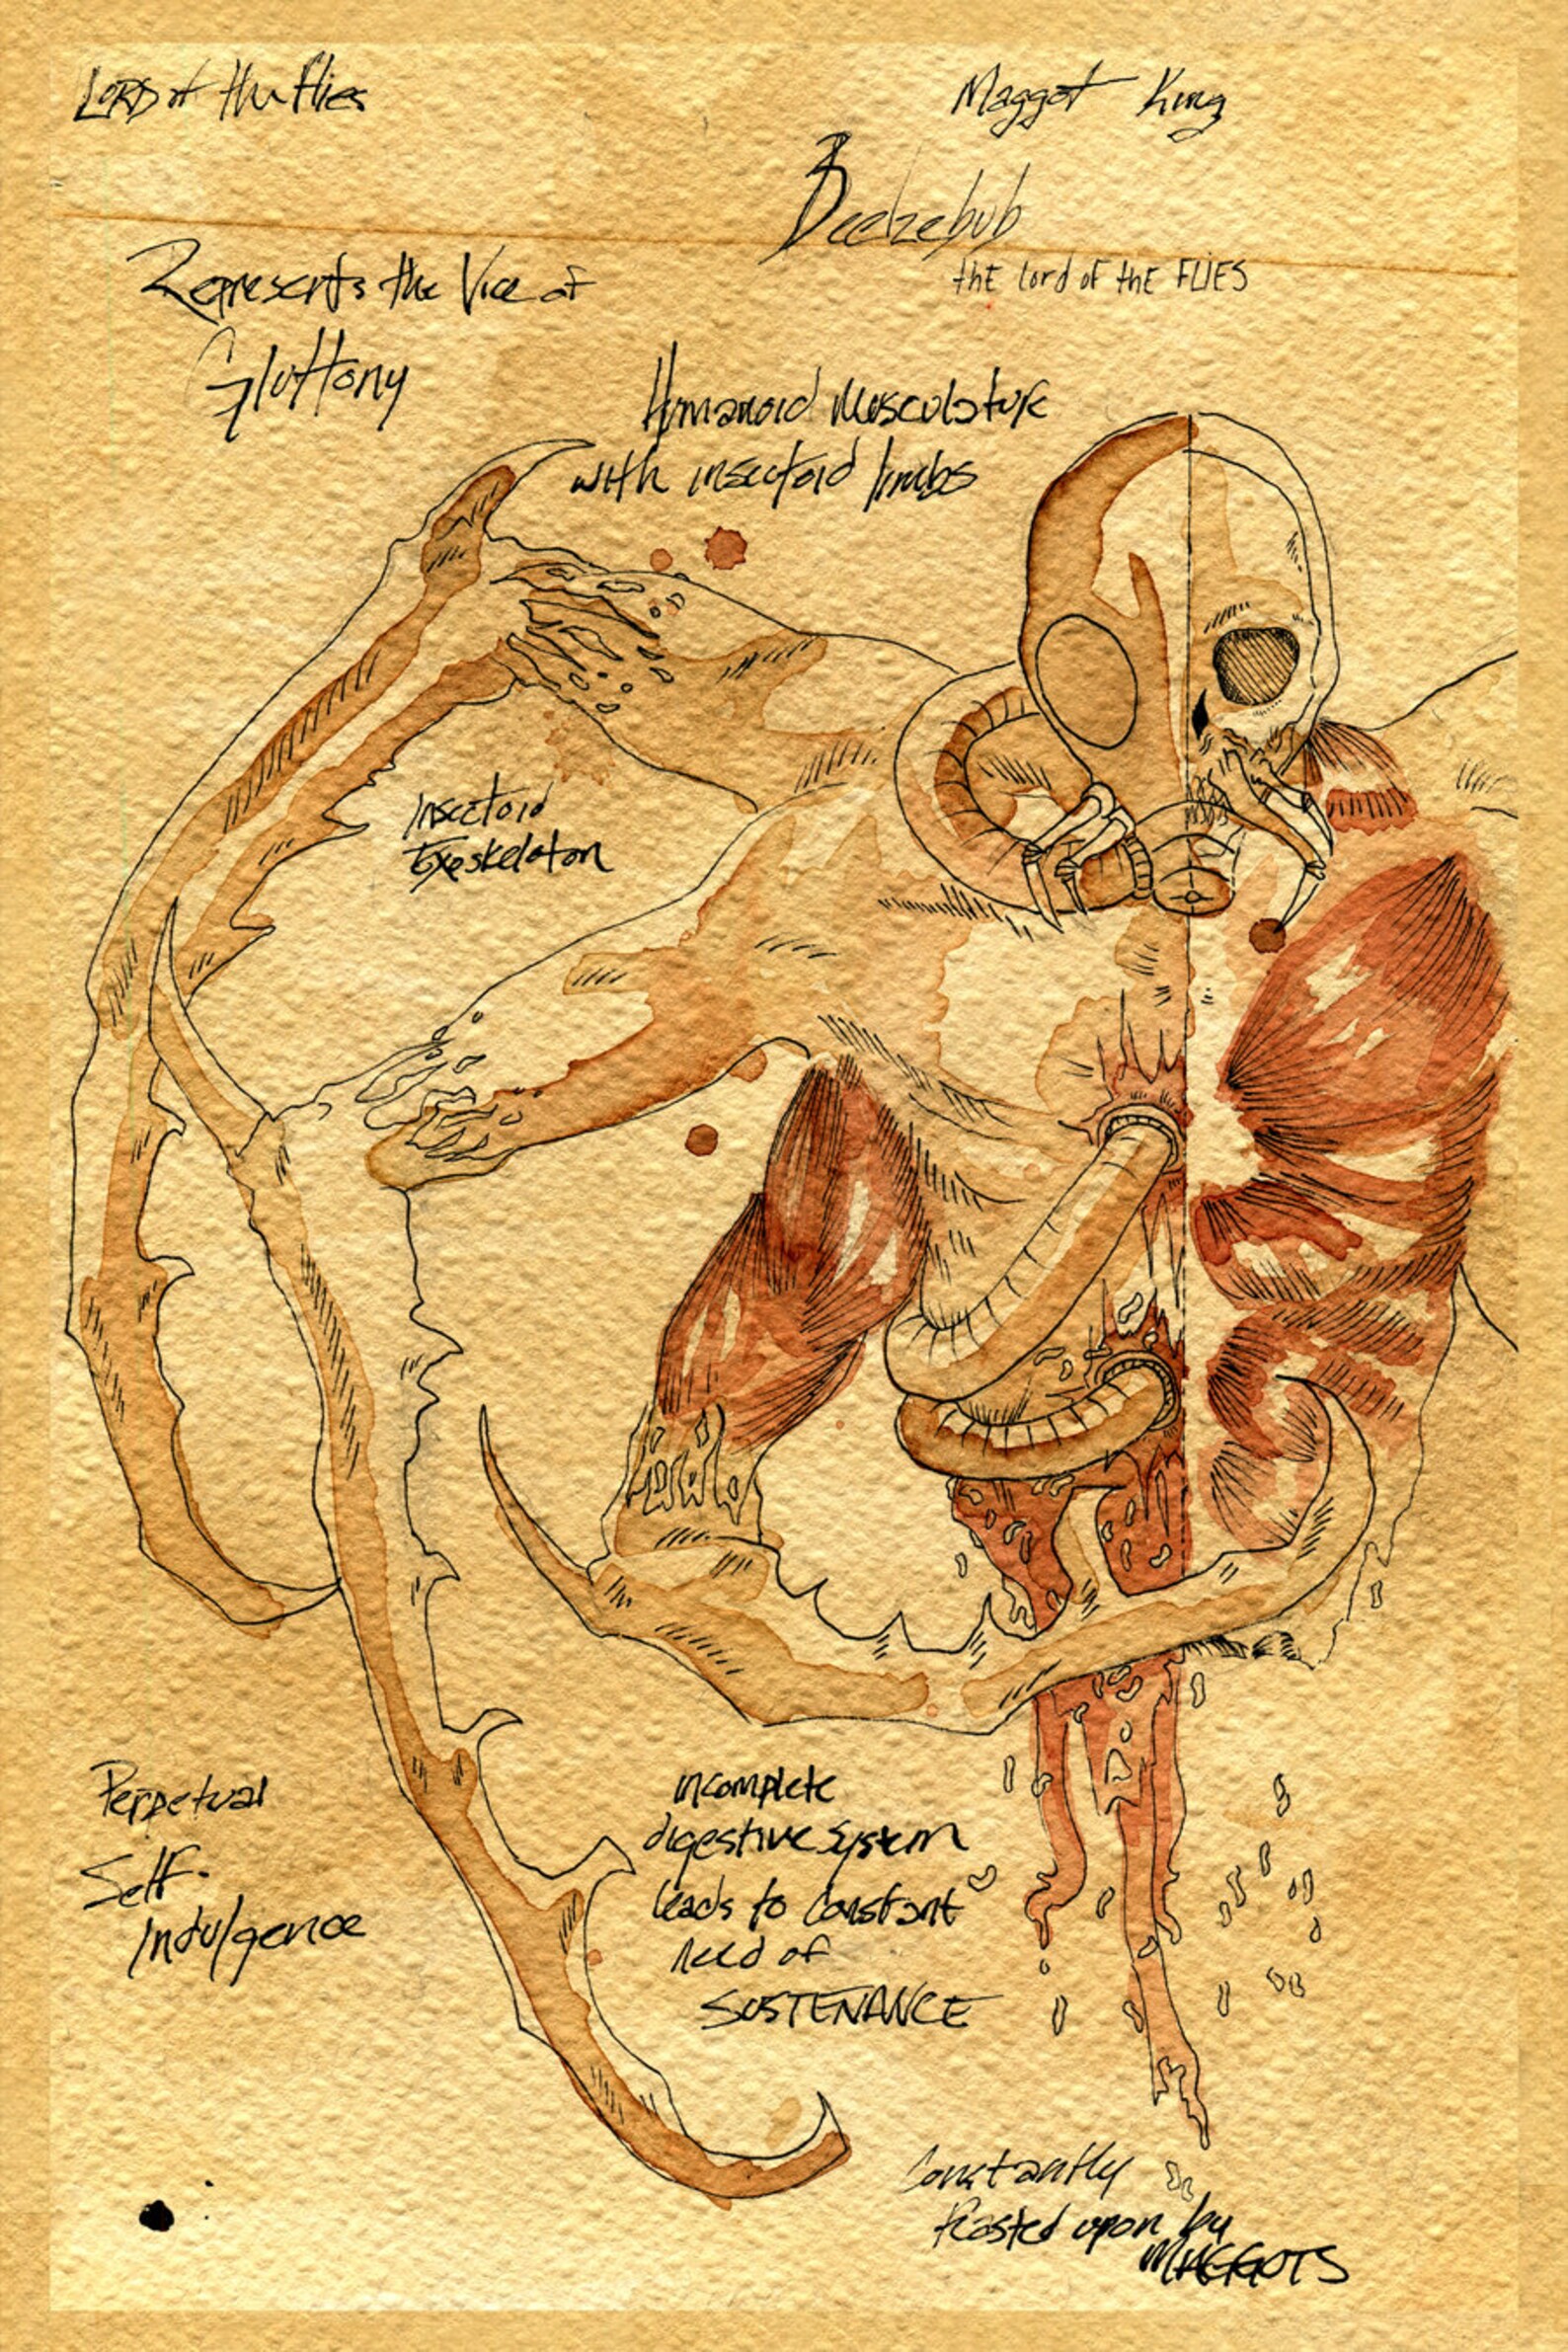 Lord of the Flies
Maggot King
Beelzebub
the lord of the FLIES
Represents the Vice of
Gluttony
Humanoid Musculature
with insectoid limbs
Insectoid
Exoskeleton
Perpetual
Self-
Indulgence
incomplete
digestive system
leads to constant
need of
SUSTENANCE
Constantly
feasted upon by
MAGGOTS